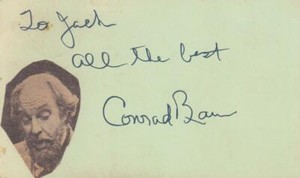 To Jack
all the best
Conrad Bain